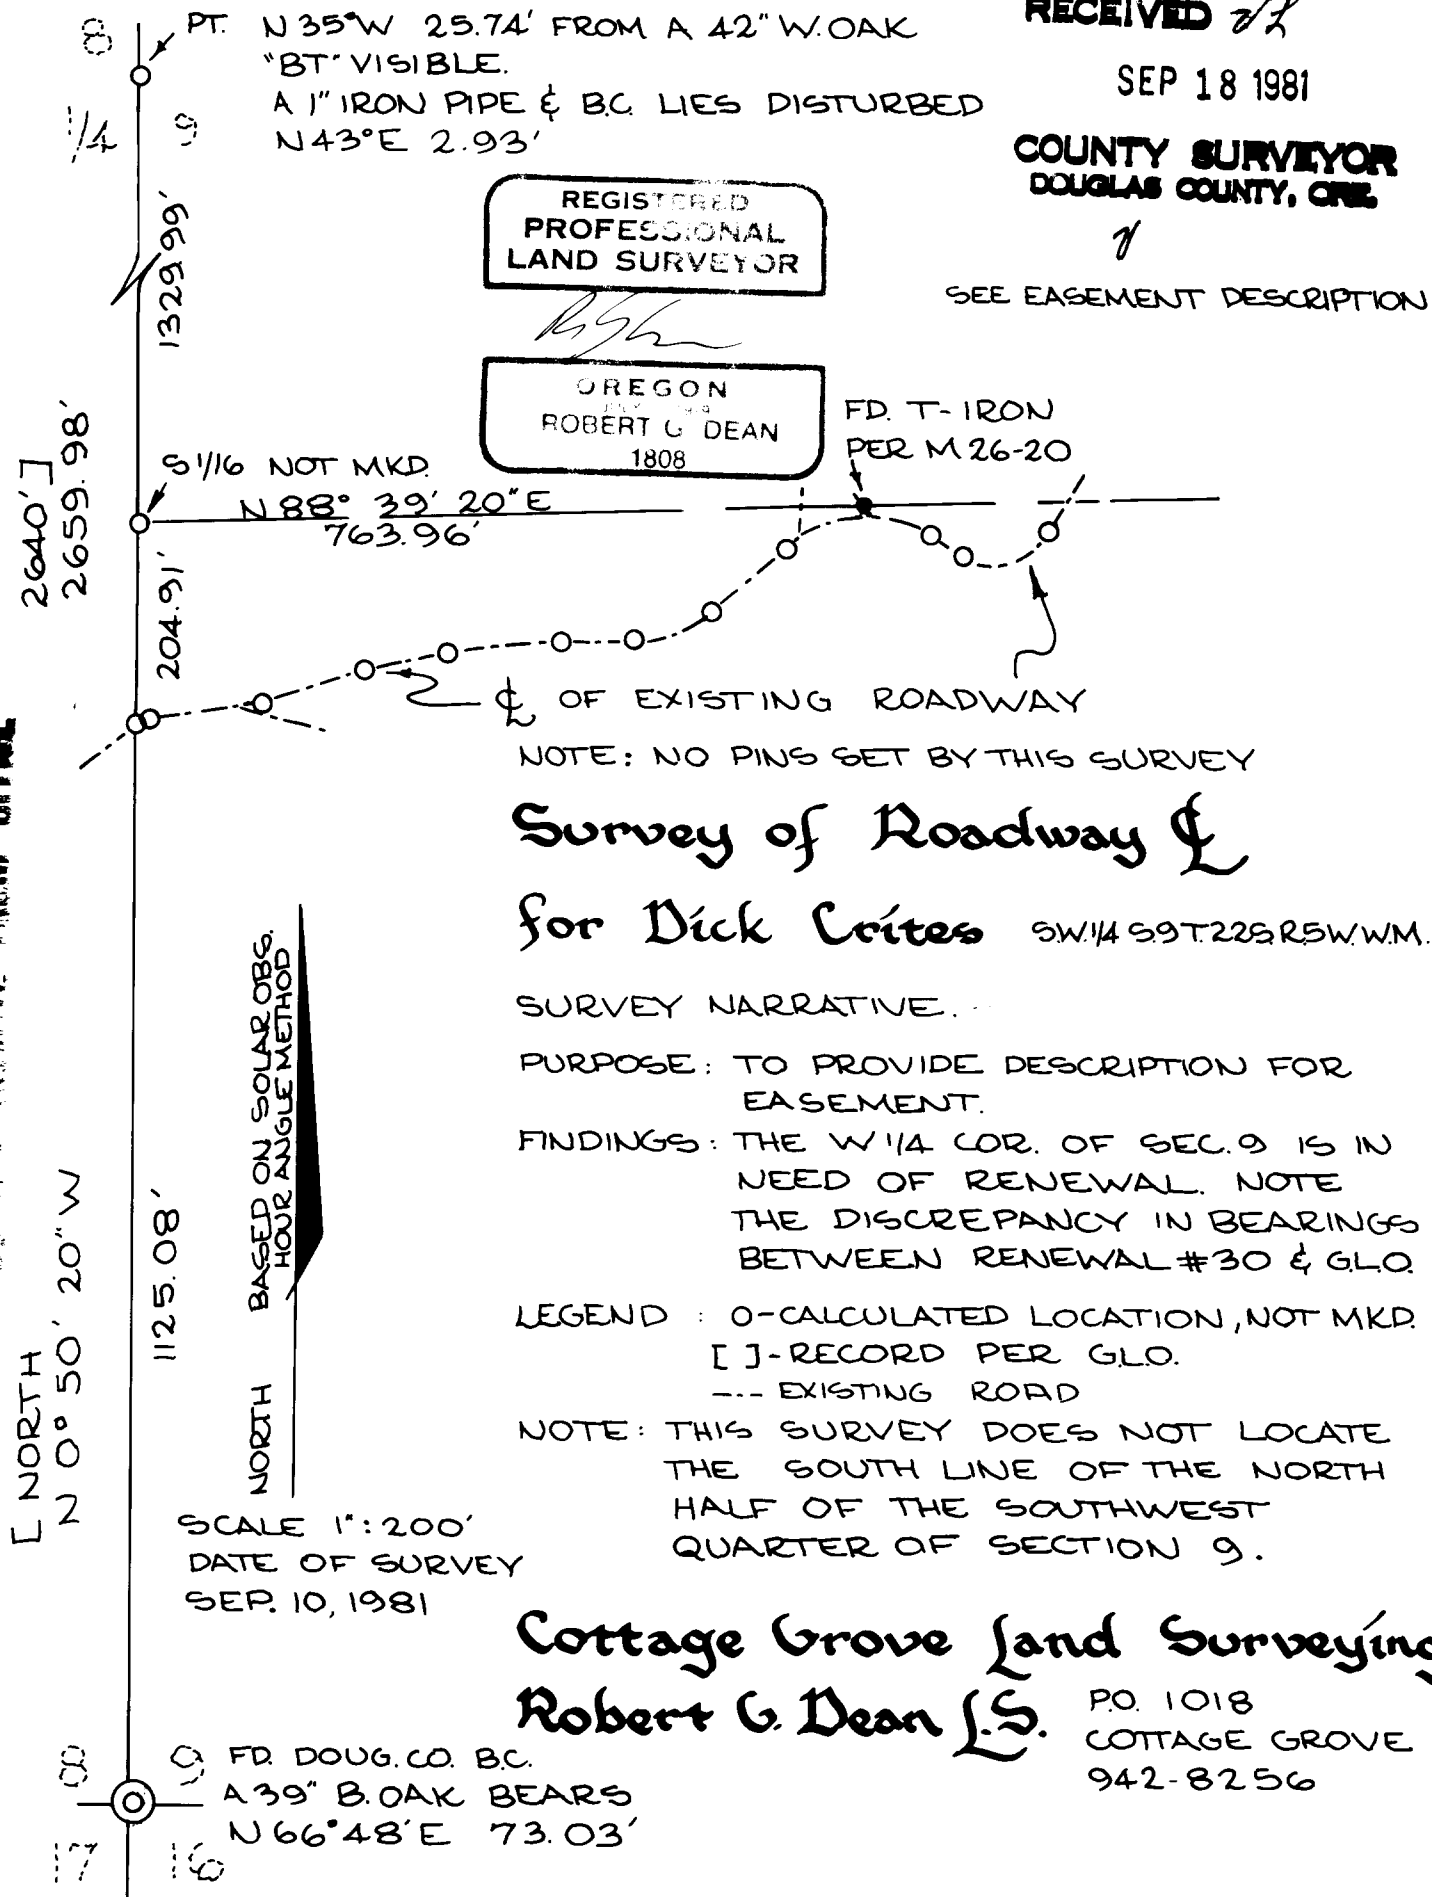 8
PT. N 35° W 25.74' FROM A 42" W. OAK
"BT" VISIBLE.
A 1" IRON PIPE & B.C. LIES DISTURBED
N 43° E 2.93'
1/4 9
RECEIVED
SEP 18 1981
COUNTY SURVEYOR
DOUGLAS COUNTY, ORE.
SEE EASEMENT DESCRIPTION
REGISTERED
PROFESSIONAL
LAND SURVEYOR
OREGON
ROBERT G DEAN
1808
1329.99'
FD. T-IRON
PER M 26-20
S 1/16 NOT MKD.
N 88° 39' 20" E
763.96'
2640' ]
2659.98'
204.91'
℄ OF EXISTING ROADWAY
NOTE: NO PINS SET BY THIS SURVEY
Survey of Roadway ℄
for Dick Crites S.W. 1/4 S9 T.22S R5W. W.M.
SURVEY NARRATIVE.
PURPOSE: TO PROVIDE DESCRIPTION FOR
EASEMENT.
FINDINGS: THE W 1/4 COR. OF SEC. 9 IS IN
NEED OF RENEWAL. NOTE
THE DISCREPANCY IN BEARINGS
BETWEEN RENEWAL #30 & G.L.O.
LEGEND : O-CALCULATED LOCATION, NOT MKD.
[ ]-RECORD PER G.L.O.
-·-- EXISTING ROAD
NOTE: THIS SURVEY DOES NOT LOCATE
THE SOUTH LINE OF THE NORTH
HALF OF THE SOUTHWEST
QUARTER OF SECTION 9.
NORTH BASED ON SOLAR OBS.
HOUR ANGLE METHOD
[ NORTH
N 0° 50' 20" W
1125.08'
SCALE 1":200'
DATE OF SURVEY
SEP. 10, 1981
Cottage Grove Land Surveying
Robert G. Dean L.S.
P.O. 1018
COTTAGE GROVE
942-8256
8 9
FD. DOUG. CO. B.C.
A 39" B. OAK BEARS
N 66° 48' E 73.03'
17 16